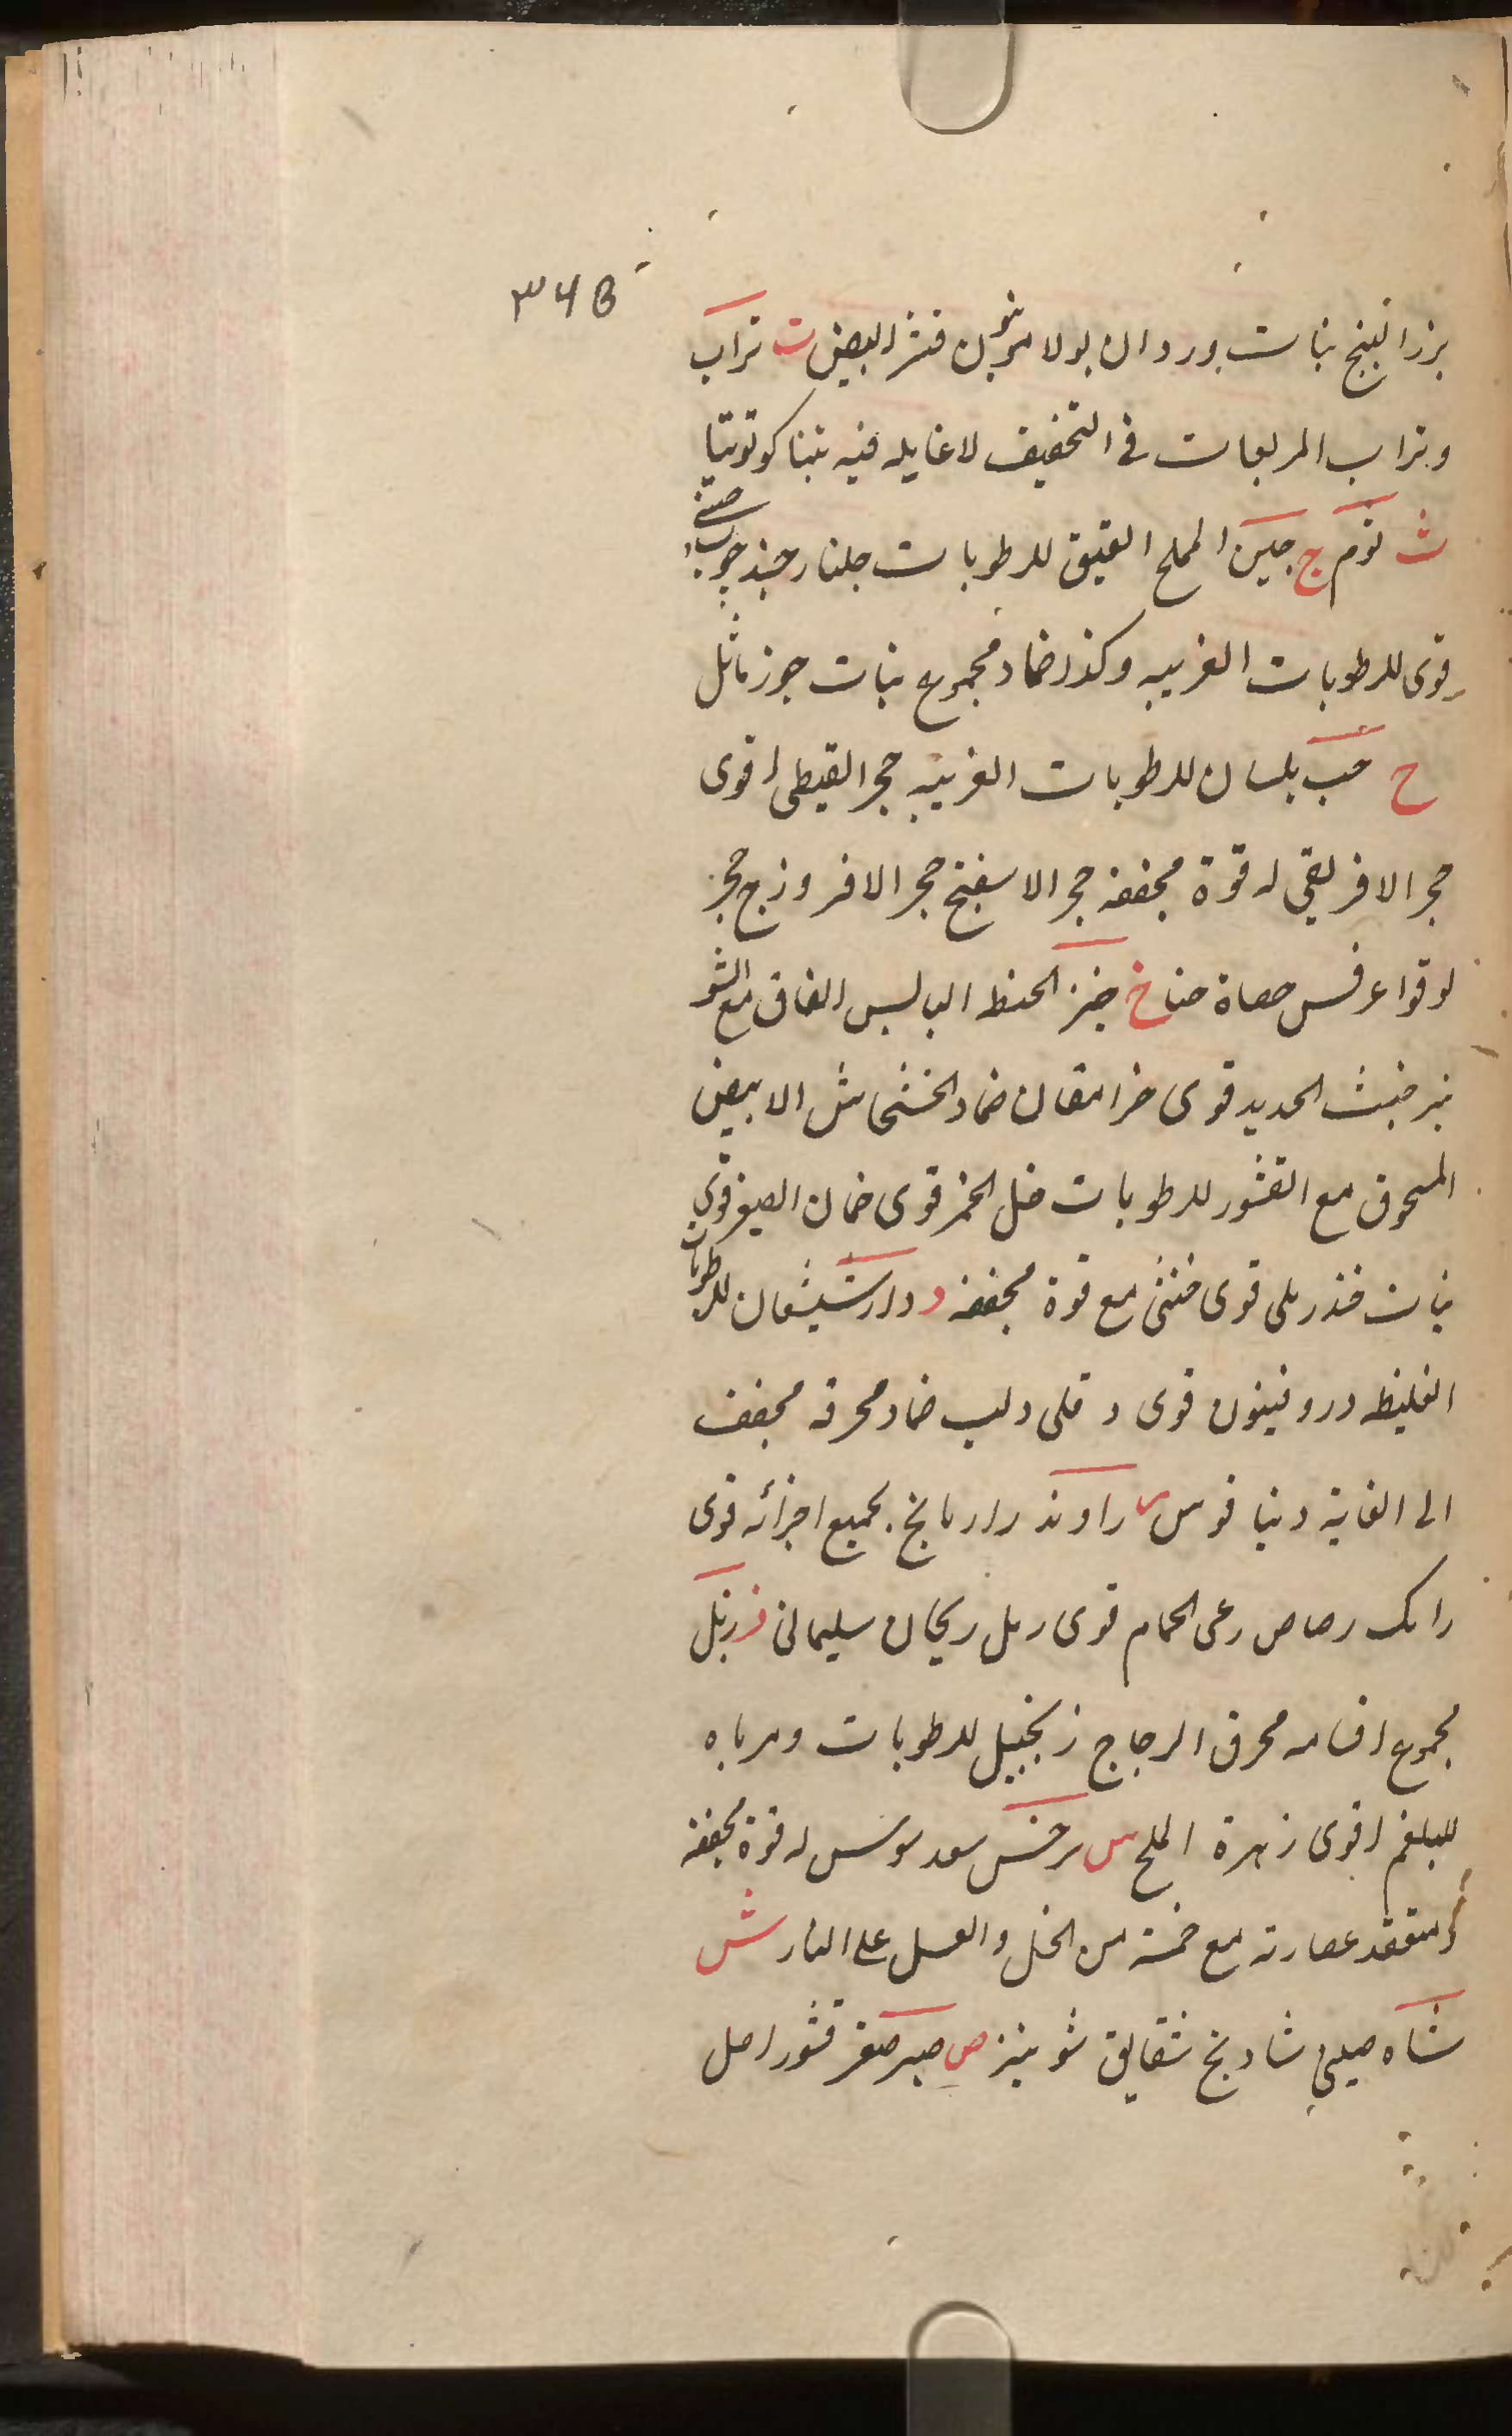 ۳۶۵
بزر البنج بنات وردان بولامونيون قشر البيض ت تراب
وتراب المربعات فى التخفيف لا غايله فيه تنباكو توتيا
ث ثوم ج جبن المملح العتيق للرطوبات جلنار جند چوب صينى
قوى للرطوبات الغريبه وكذا ضماد مجموع نبات جوز ماثل
ح حب بلسان للرطوبات الغريبه حجر القبطى اقوى
حجر الافريقى له قوة مجففه حجر الاسفنج حجر الافروزج حجر
لوقوا عرفس حصاة حنا خ خبز الحنطه اليابس الفاق مع الشو
نيز خبث الحديد قوى ضماد الخشخاش الابيض
المسحوق مع القشور للرطوبات خل الخمر قوى خمان الصيغر قوى
نبات خندريلى قوى خنثى مع قوة مجففه د دارشيشعان للرطوبات
الغليظه دروفينون قوى دفلى دلب ضماد محرقه مجفف
الى الغاية دنيا قوس ر راوند رازيانج بجميع اجزائه قوى
رامك رصاص رعى الحمام قوى رمل ريحان سليمانى ز زبل
مجموع اقسامه محرق الزجاج زنجبيل للرطوبات ومرباه
للبلغم اقوى زهرة الملح س سرخس سعد سوسن له قوة مجففه
عصارته مع خمسة من الخل والعسل على النار ش
شاه صينى شادنج شقايق شونيز ص صبر صعتر قشور اصل